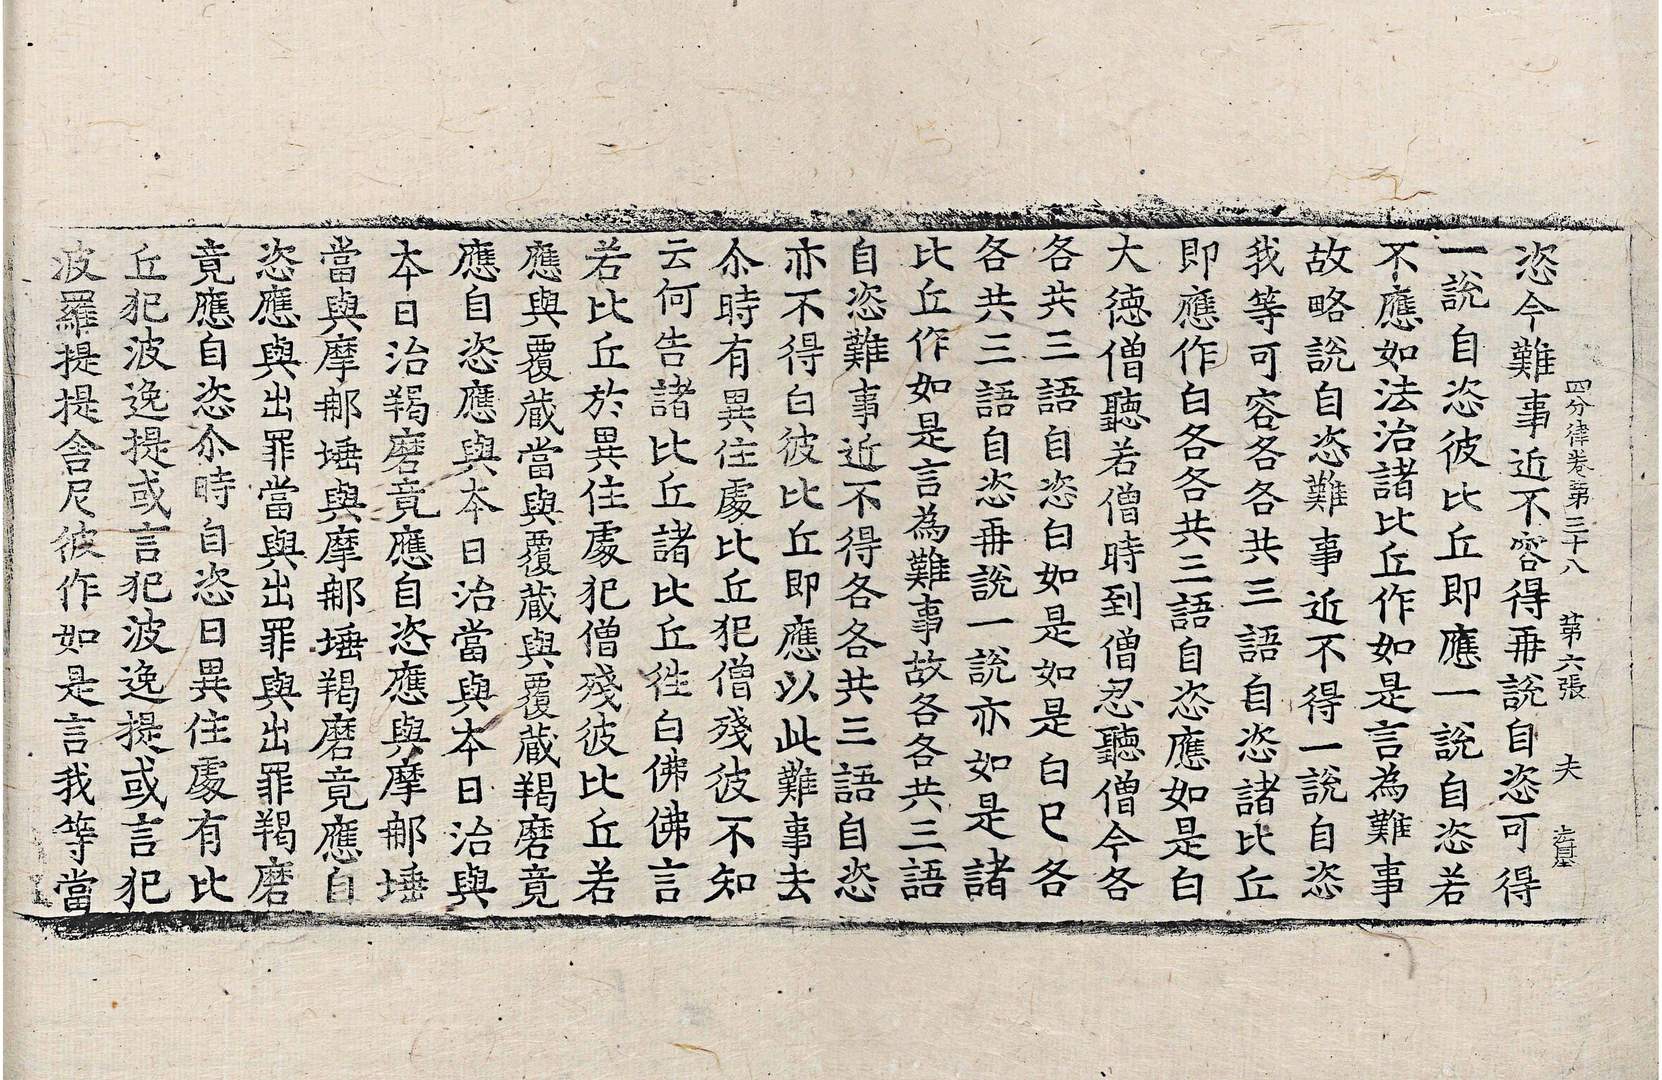 四分律卷第三十八 第六張 夫
恣今難事近不容得再說自恣可得
一說自恣彼比丘即應一說自恣若
不應如法治諸比丘作如是言為難事
故略說自恣難事近不得一說自恣
我等可容各各共三語自恣諸比丘
即應作白各各共三語自恣應如是白
大德僧聽若僧時到僧忍聽僧今各
各共三語自恣白如是如是白已各
各共三語自恣再說一說亦如是諸
比丘作如是言為難事故各各共三語
自恣難事近不得各各共三語自恣
亦不得白彼比丘即應以此難事去
尒時有異住處比丘犯僧殘彼不知
云何告諸比丘諸比丘徃白佛佛言
若比丘於異住處犯僧殘彼比丘若
應與覆藏當與覆藏與覆藏羯磨竟
應自恣應與本日治當與本日治與
本日治羯磨竟應自恣應與摩那埵
當與摩那埵與摩那埵羯磨竟應自
恣應與出罪當與出罪與出罪羯磨
竟應自恣尒時自恣日異住處有比
丘犯波逸提或言犯波逸提或言犯
波羅提提舍尼彼作如是言我等當